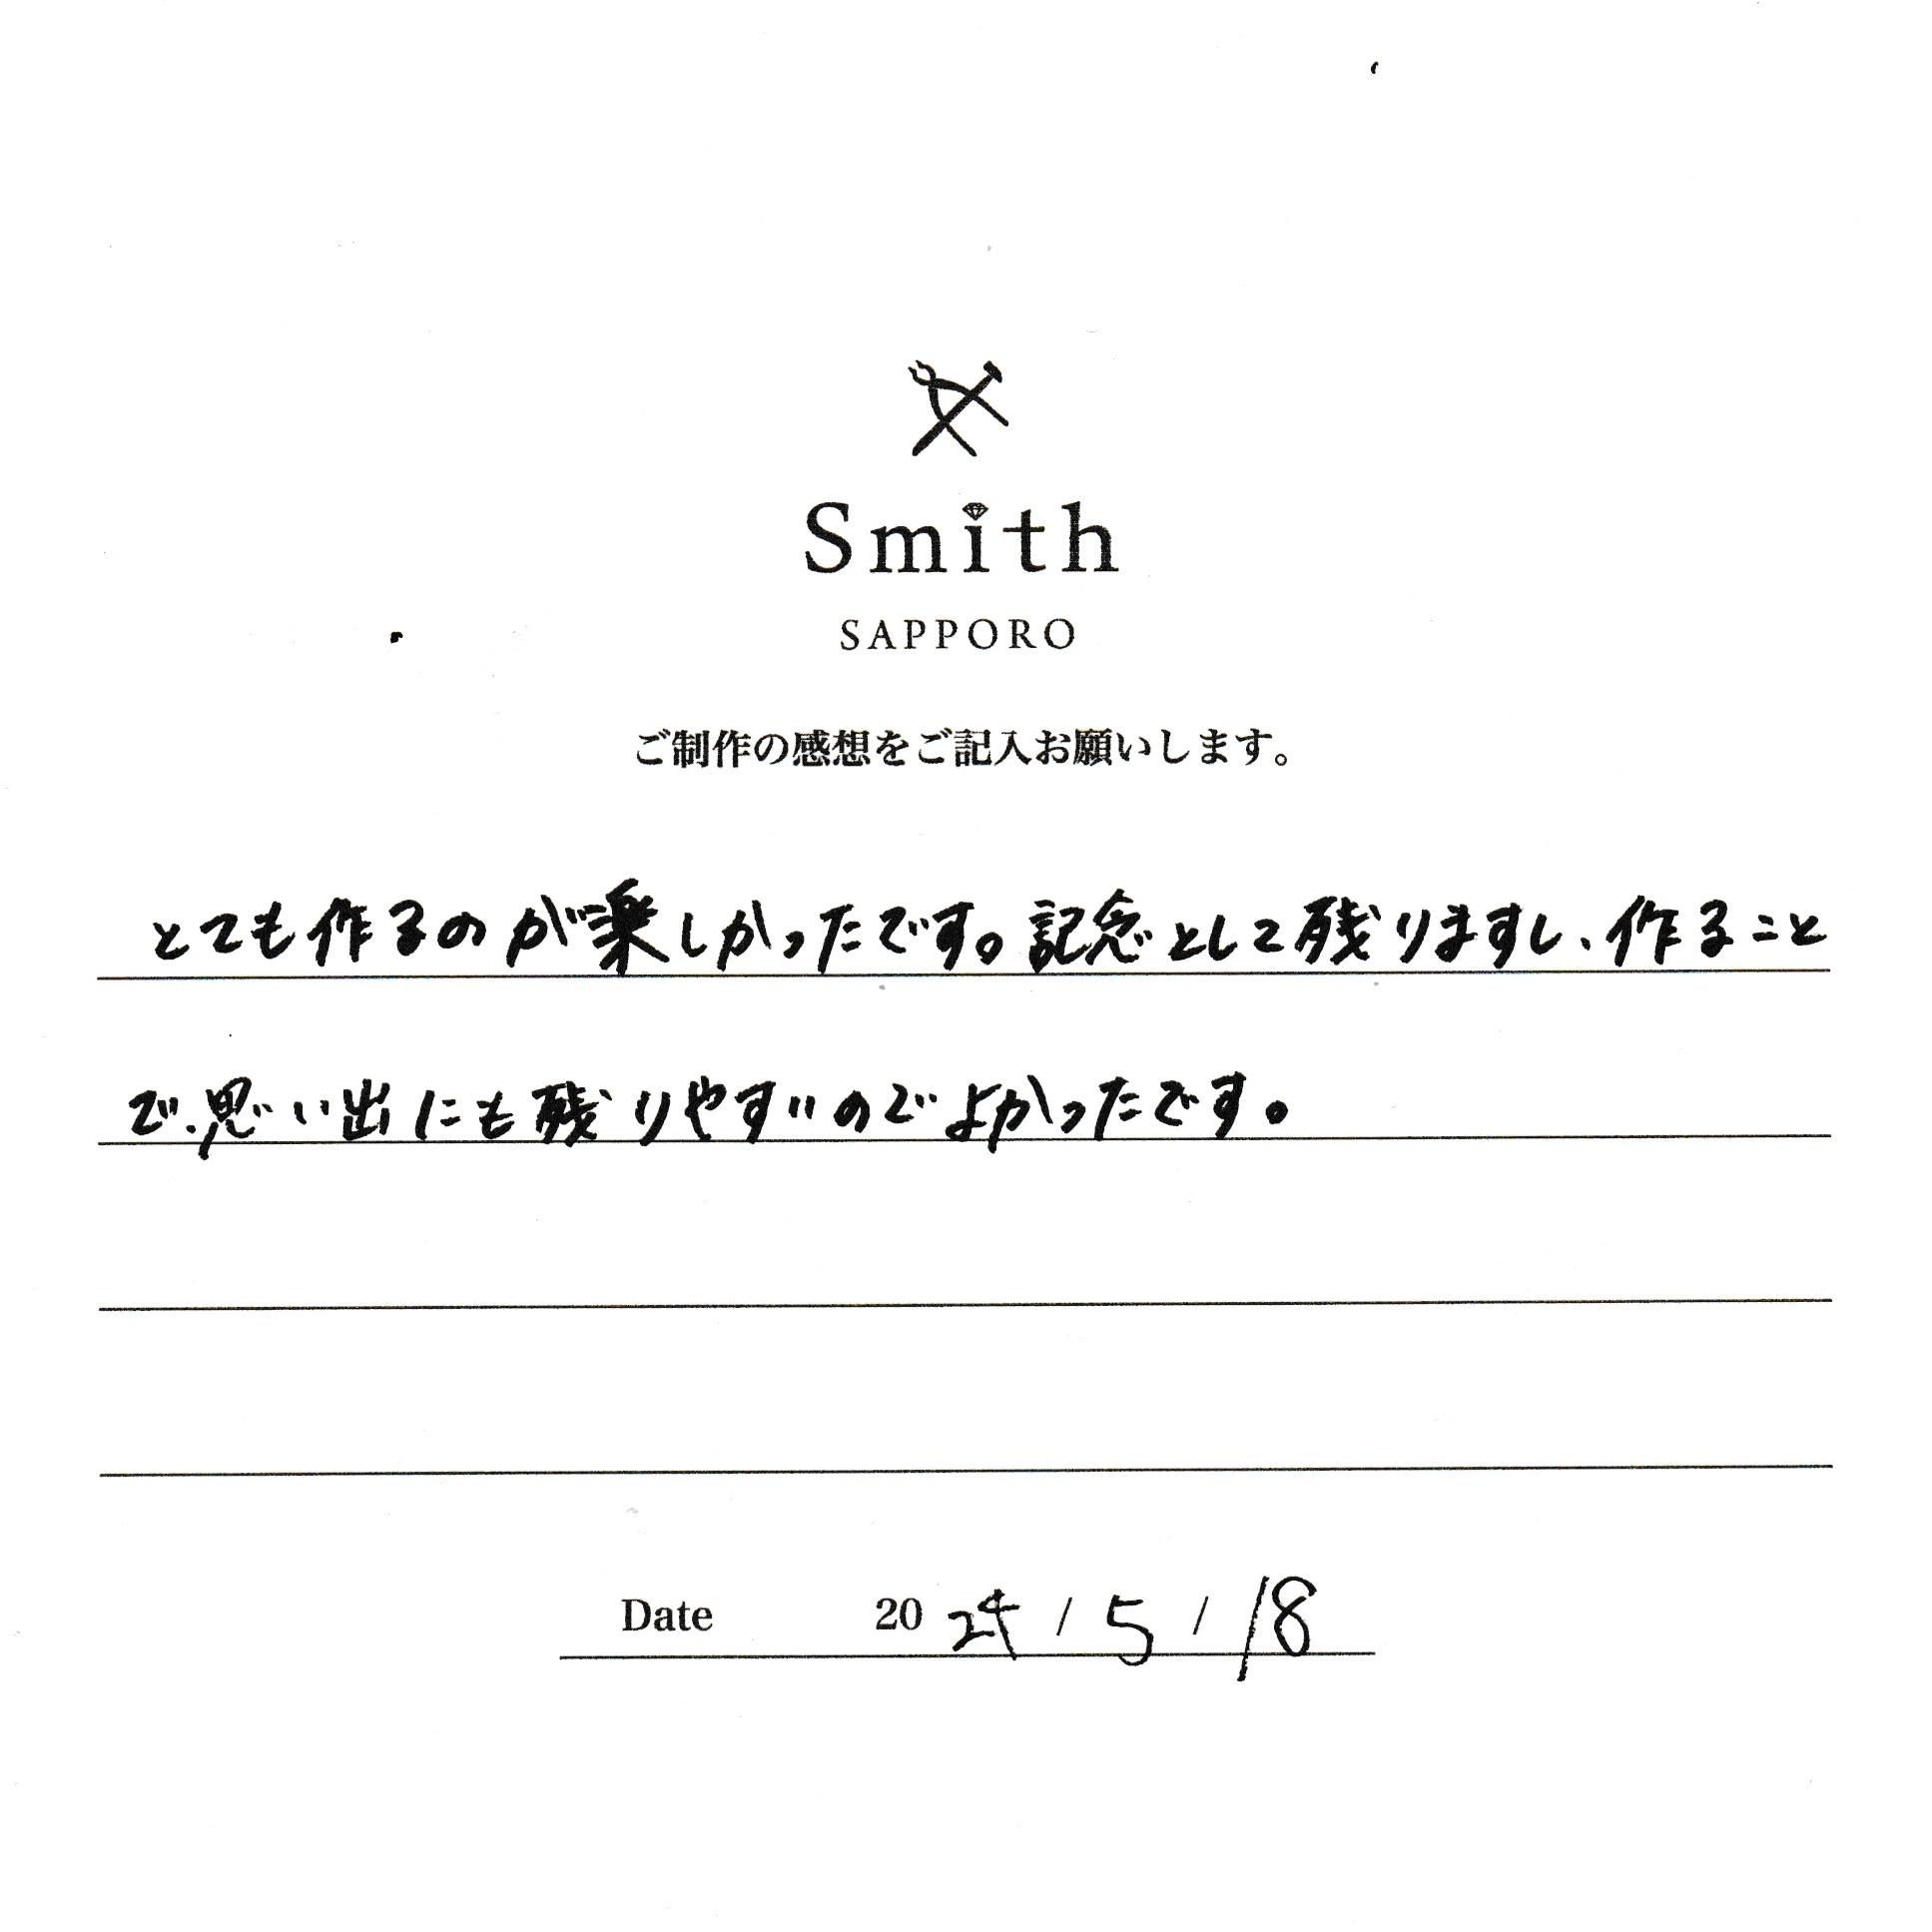 Smith
SAPPORO
ご制作の感想をご記入お願いします。
とても作るのが楽しかったです。記念として残りますし、作ること
で、思い出にも残りやすいのでよかったです。
Date 2024 / 5 / 18